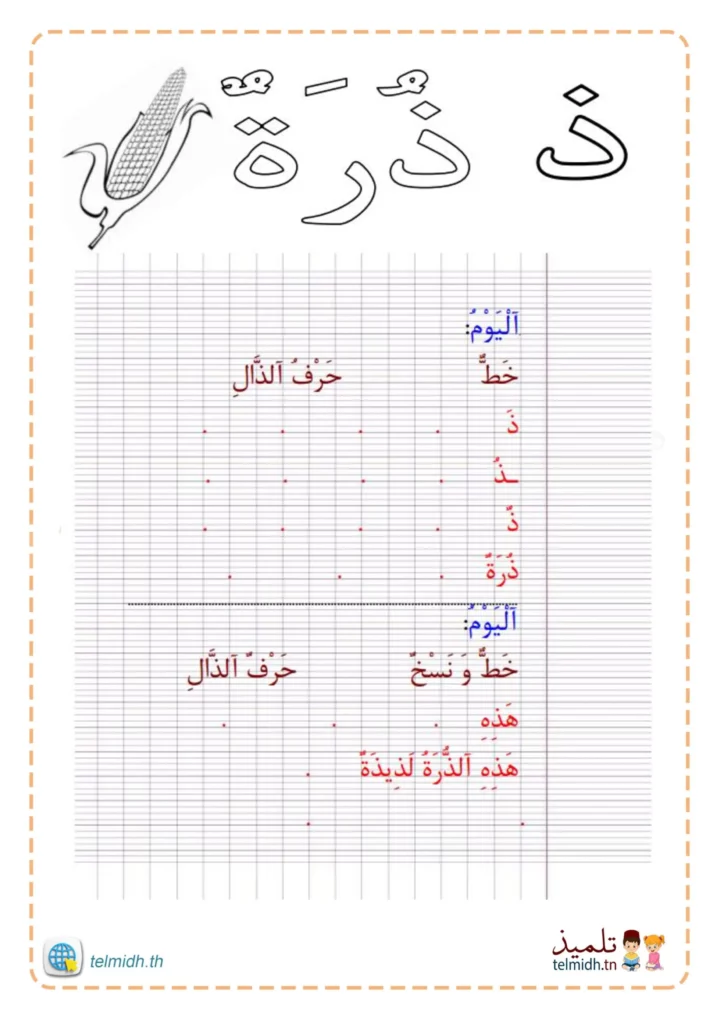 ذ ذُرَةٌ
اَلْيَوْمُ:
خَطٌّ حَرْفُ اَلذَّالِ
ذَ . . . .
ـذُ . . . .
ذٌ . . . .
ذُرَةٌ . . .
اَلْيَوْمُ:
خَطٌّ وَ نَسْخٌ حَرْفُ اَلذَّالِ
هَذِهِ . . .
هَذِهِ اَلذُّرَةُ لَذِيذَةٌ .
. .
telmidh.th
تلميذ
telmidh.tn